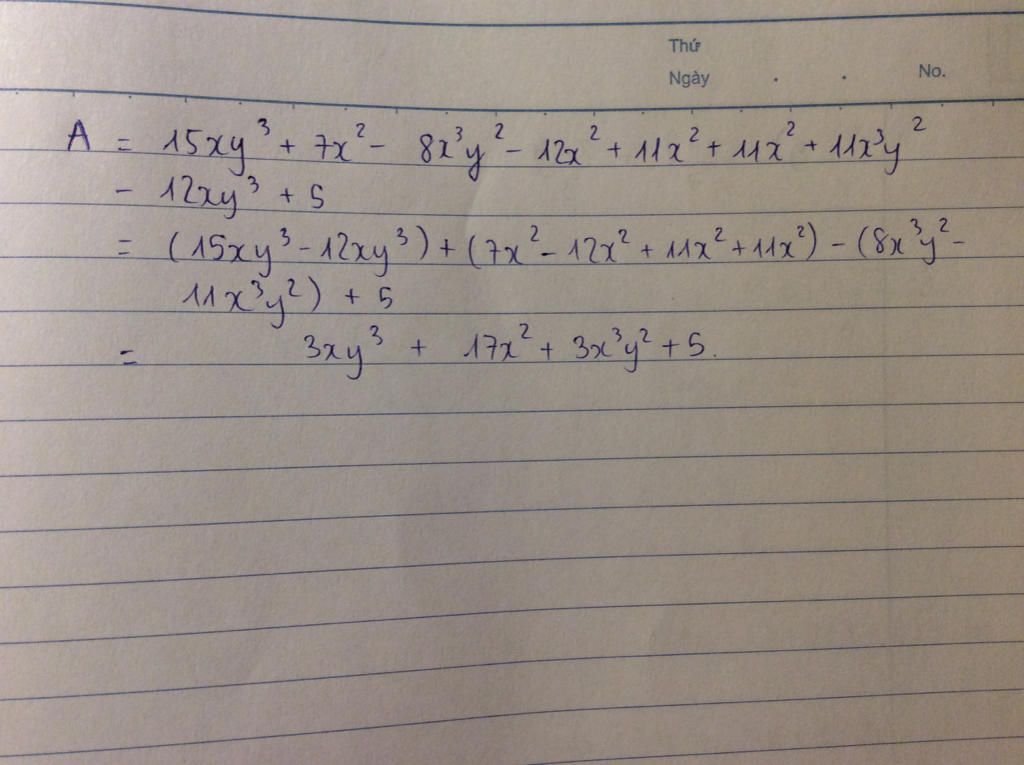 Thứ
Ngày . . No.
A = 15xy³ + 7x² - 8x³y² - 12x² + 11x² + 11x² + 11x³y²
- 12xy³ + 5
= (15xy³ - 12xy³) + (7x² - 12x² + 11x² + 11x²) - (8x³y² -
11x³y²) + 5
= 3xy³ + 17x² + 3x³y² + 5.